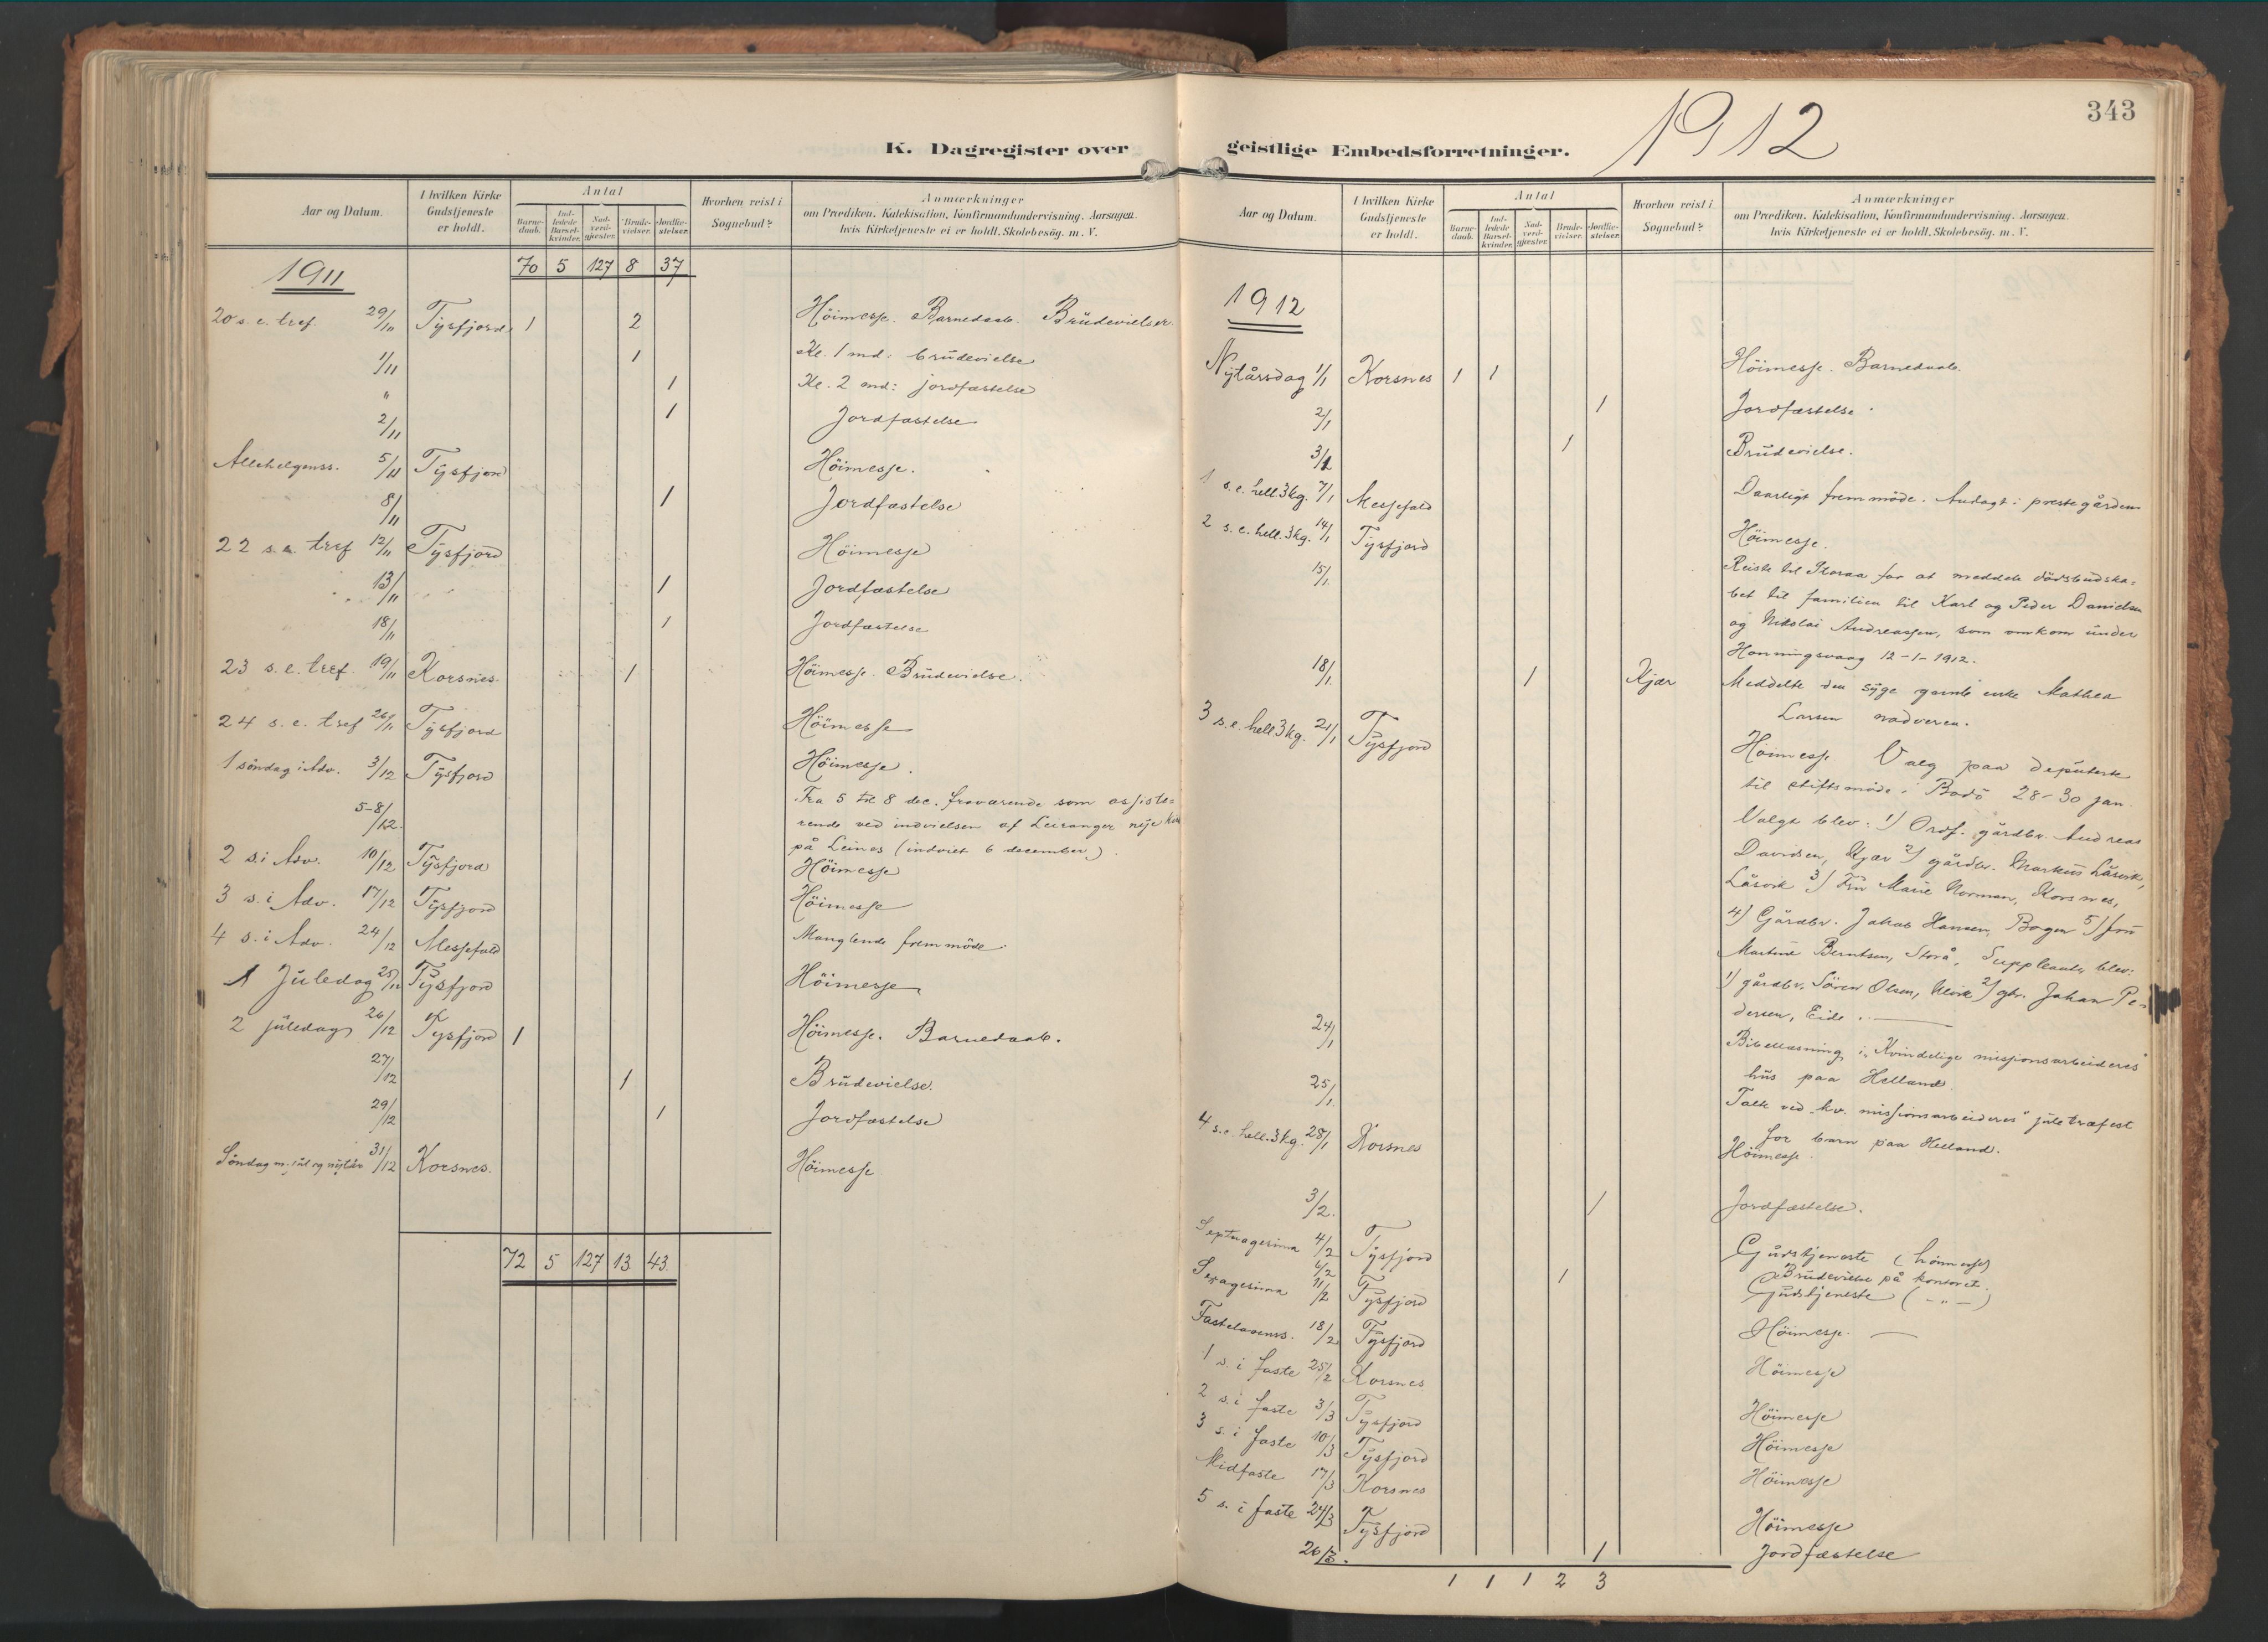 343
1912
K. Dagregister over geistlige Embedsforretninger.
Aar og Datum.
I hvilken Kirke Gudstjeneste er holdt.
Antal
Barne-daab.
Ind-ledede Barsel-kvinder.
Nad-verd-gjester.
Brude-vielser.
Jordfæ-stelser.
Hvorhen reist i Sognebud?
Anmærkninger
om Prædiken, Katekisation, Konfirmandundervisning. Aarsagen,
hvis Kirketjeneste ei er holdt. Skolebesög. m. V.
1911 70 5 127 8 37
20 s. e. tref. 29/10 Tysfjord 1 2 Höimesse. Barnedaab. Brudevielser.
1/11 1 Kl. 1 md: brudevielse
" 1 Kl. 2 md: jordfæstelse
2/11 1 Jordfæstelse
Allehelgenss. 5/11 Tysfjord Höimesse.
8/11 1 Jordfæstelse
22 s. e. tref 12/11 Tysfjord Höimesse
13/11 1 Jordfæstelse
18/11 1 Jordfæstelse
23 s. e. tref. 19/11 Korsnes. 1 Höimesse. Brudevielse.
24 s. e. tref 26/11 Tysfjord Höimesse
1 söndag i Adv. 3/12 Tysfjord Höimesse.
5-8/12. Fra 5 til 8 dec. fraværende som assiste-
rende ved indvielsen af Leiranger nye
på Leines (indviet 6 december).
2 s. i Adv. 10/12 Tysfjord Höimesse
3 s. i Adv. 17/12 Tysfjord Höimesse
4 s. i Adv. 24/12 Messefald Manglende fremmöde.
1 Juledag 25/12 Tysfjord Höimesse
2 juledag 26/12 Tysfjord 1 Höimesse. Barnedaab.
27/12 1 Brudevielse.
29/12 1 Jordfæstelse
Söndag m. jul og nytår 31/12 Korsnes. Höimesse
72 5 127 13 43.
Aar og Datum.
I hvilken Kirke Gudstjeneste er holdt.
Antal
Barne-daab.
Ind-ledede Barsel-kvinder.
Nad-verd-gjester.
Brude-vielser.
Jordfæ-stelser.
Hvorhen reist i Sognebud?
Anmærkninger
om Prædiken, Katekisation, Konfirmandundervisning. Aarsagen,
hvis Kirketjeneste ei er holdt. Skolebesög. m. V.
1912
Nytårsdag 1/1 Korsnes 1 1 Höimesse. Barnedaab.
2/1 1 Jordfæstelse.
3/1 1 Brudevielse.
1 s. e. hell. 3 kg. 7/1 Messefald Daarligt fremmöde. Andagt i prestegården
2 s. e. hell. 3 kg. 14/1 Tysfjord Höimesse.
15/1. Reiste til Storaa for at meddele dödsbudska-
bet til familien til Karl og Peder Danielsen
og Nikolai Andreassen, som omkom under
Honningsvaag 12-1-1912.
18/1. 1 Kjær Meddelte den syge gamle enke Mathea
Larsen nadveren.
3 s. e. hell 3 kg. 21/1 Tysfjord Höimesse. Valg paa deputerte
til stiftsmöde i Bodö 28-30 jan.
Valgt blev: 1) Ordf. gårdbr. Andreas
Davidsen, Kjær 2) gårdbr. Markus
3) Fru Marie Norman, Korsnes,
4) Gårdbr. Jakob Hansen, Bogen 5) fru
Martine Berntsen, Storå. Suppleanter blev:
1) gårdbr. Sören Olsen, 2) gbr. Johan Pe-
dersen, Eide.
24/1 Bibellæsning i „Kvindelige missionsarbeideres"
hus paa Helland.
25/1. Talte ved „kv. missionsarbeideres" juletræfest
for barn paa Helland.
4 s. e. hell. 3 kg. 28/1 Korsnes Höimesse.
3/2. 1 Jordfæstelse.
Septuagesima 4/2 Tysfjord Gudstjeneste (höimesse)
6/2 1 Brudevielse på kontoret.
Sexagesima 11/2 Tysfjord Gudstjeneste (-"-)
Fastelavenss. 18/2 Tysfjord Höimesse.
1 s. i faste 25/2 Korsnes Höimesse
2 s. i faste 3/3 Tysfjord Höimesse
3 s. i faste 10/3 Tysfjord Höimesse
Midfaste 17/3 Korsnes Höimesse
5 s. i faste 24/3 Tysfjord Höimesse
26/3. 1 Jordfæstelse
1 1 1 2 3